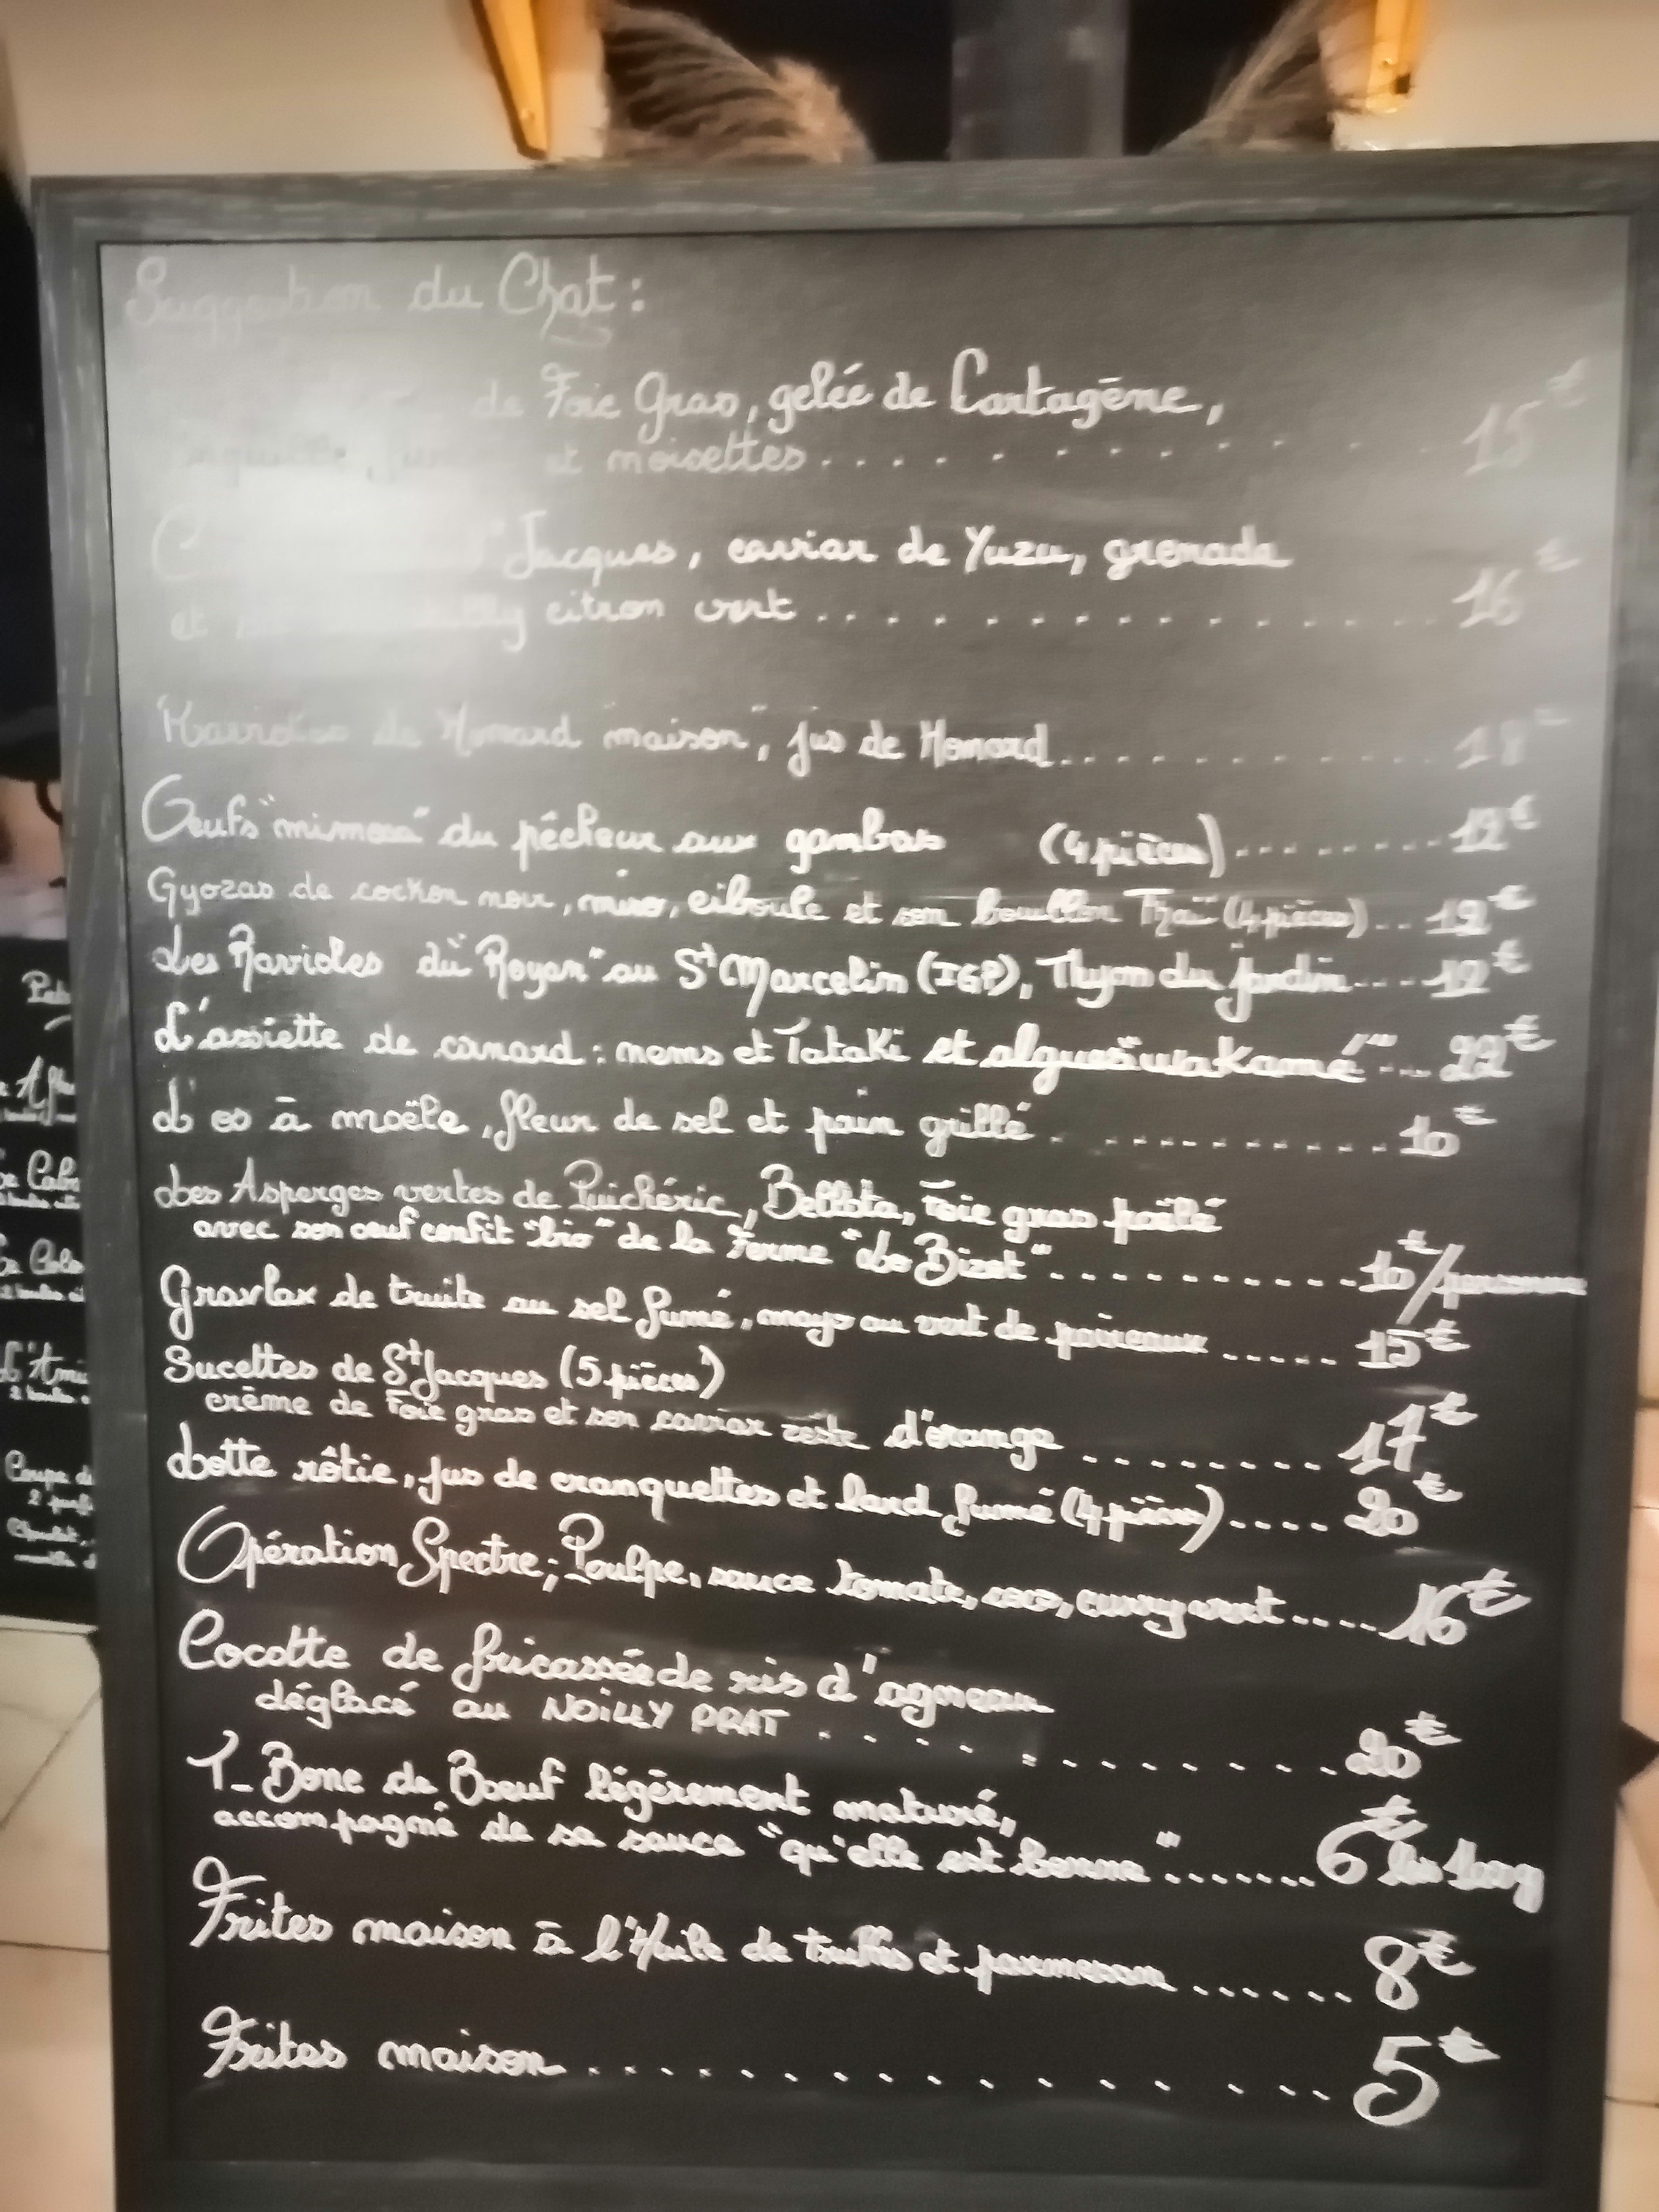 Suggestion du Chat :
de Foie Gras, gelée de Cartagène,
et noisettes . . . . . . . . . . . 15€
Jacques, caviar de Yuzu, grenade
et citron vert . . . . . . . . . . . . . . 16€
Ravioles de Homard "maison", jus de Homard . . . . . . . . . . 18€
Oeufs "mimosa" du pêcheur aux gambas (4 pièces) . . . . . . . . 12€
Gyozas de cochon noir, miso, ciboule et son bouillon Thaï (4 pièces) . . 12€
Les Ravioles du "Royan" au St Marcelin (IGP), Thym du jardin . . . 12€
L'assiette de canard : nems et Tataki et algues "wakamé" . . . 22€
L'os à moële, fleur de sel et pain grillé . . . . . . . . . . . 10€
Les Asperges vertes de Puichéric, Bellota, Foie gras poêlé
avec son oeuf confit "bio" de la Ferme "Le Bizet" . . . . . . . . . . . 10€/personne
Gravlax de truite au sel fumé, mayo au vert de poireaux . . . . . 15€
Sucettes de St Jacques (5 pièces)
crème de Foie gras et son caviar zeste d'orange . . . . . . . . 17€
Lotte rôtie, jus de cranquettes et lard fumé (4 pièces) . . . . 20€
Opération Spectre ; Poulpe, sauce tomate, coco, curry vert . . . . 16€
Cocotte de fricassée de ris d'agneau
déglacé au NOILLY PRAT . . . . . . . . . . . 20€
T-Bone de Boeuf légèrement maturé,
accompagné de sa sauce "qu'elle est bonne" . . . . . . . 6€ les 100g
Frites maison à l'Huile de truffes et parmesan . . . . . . 8€
Frites maison . . . . . . . . . . . . . . . 5€